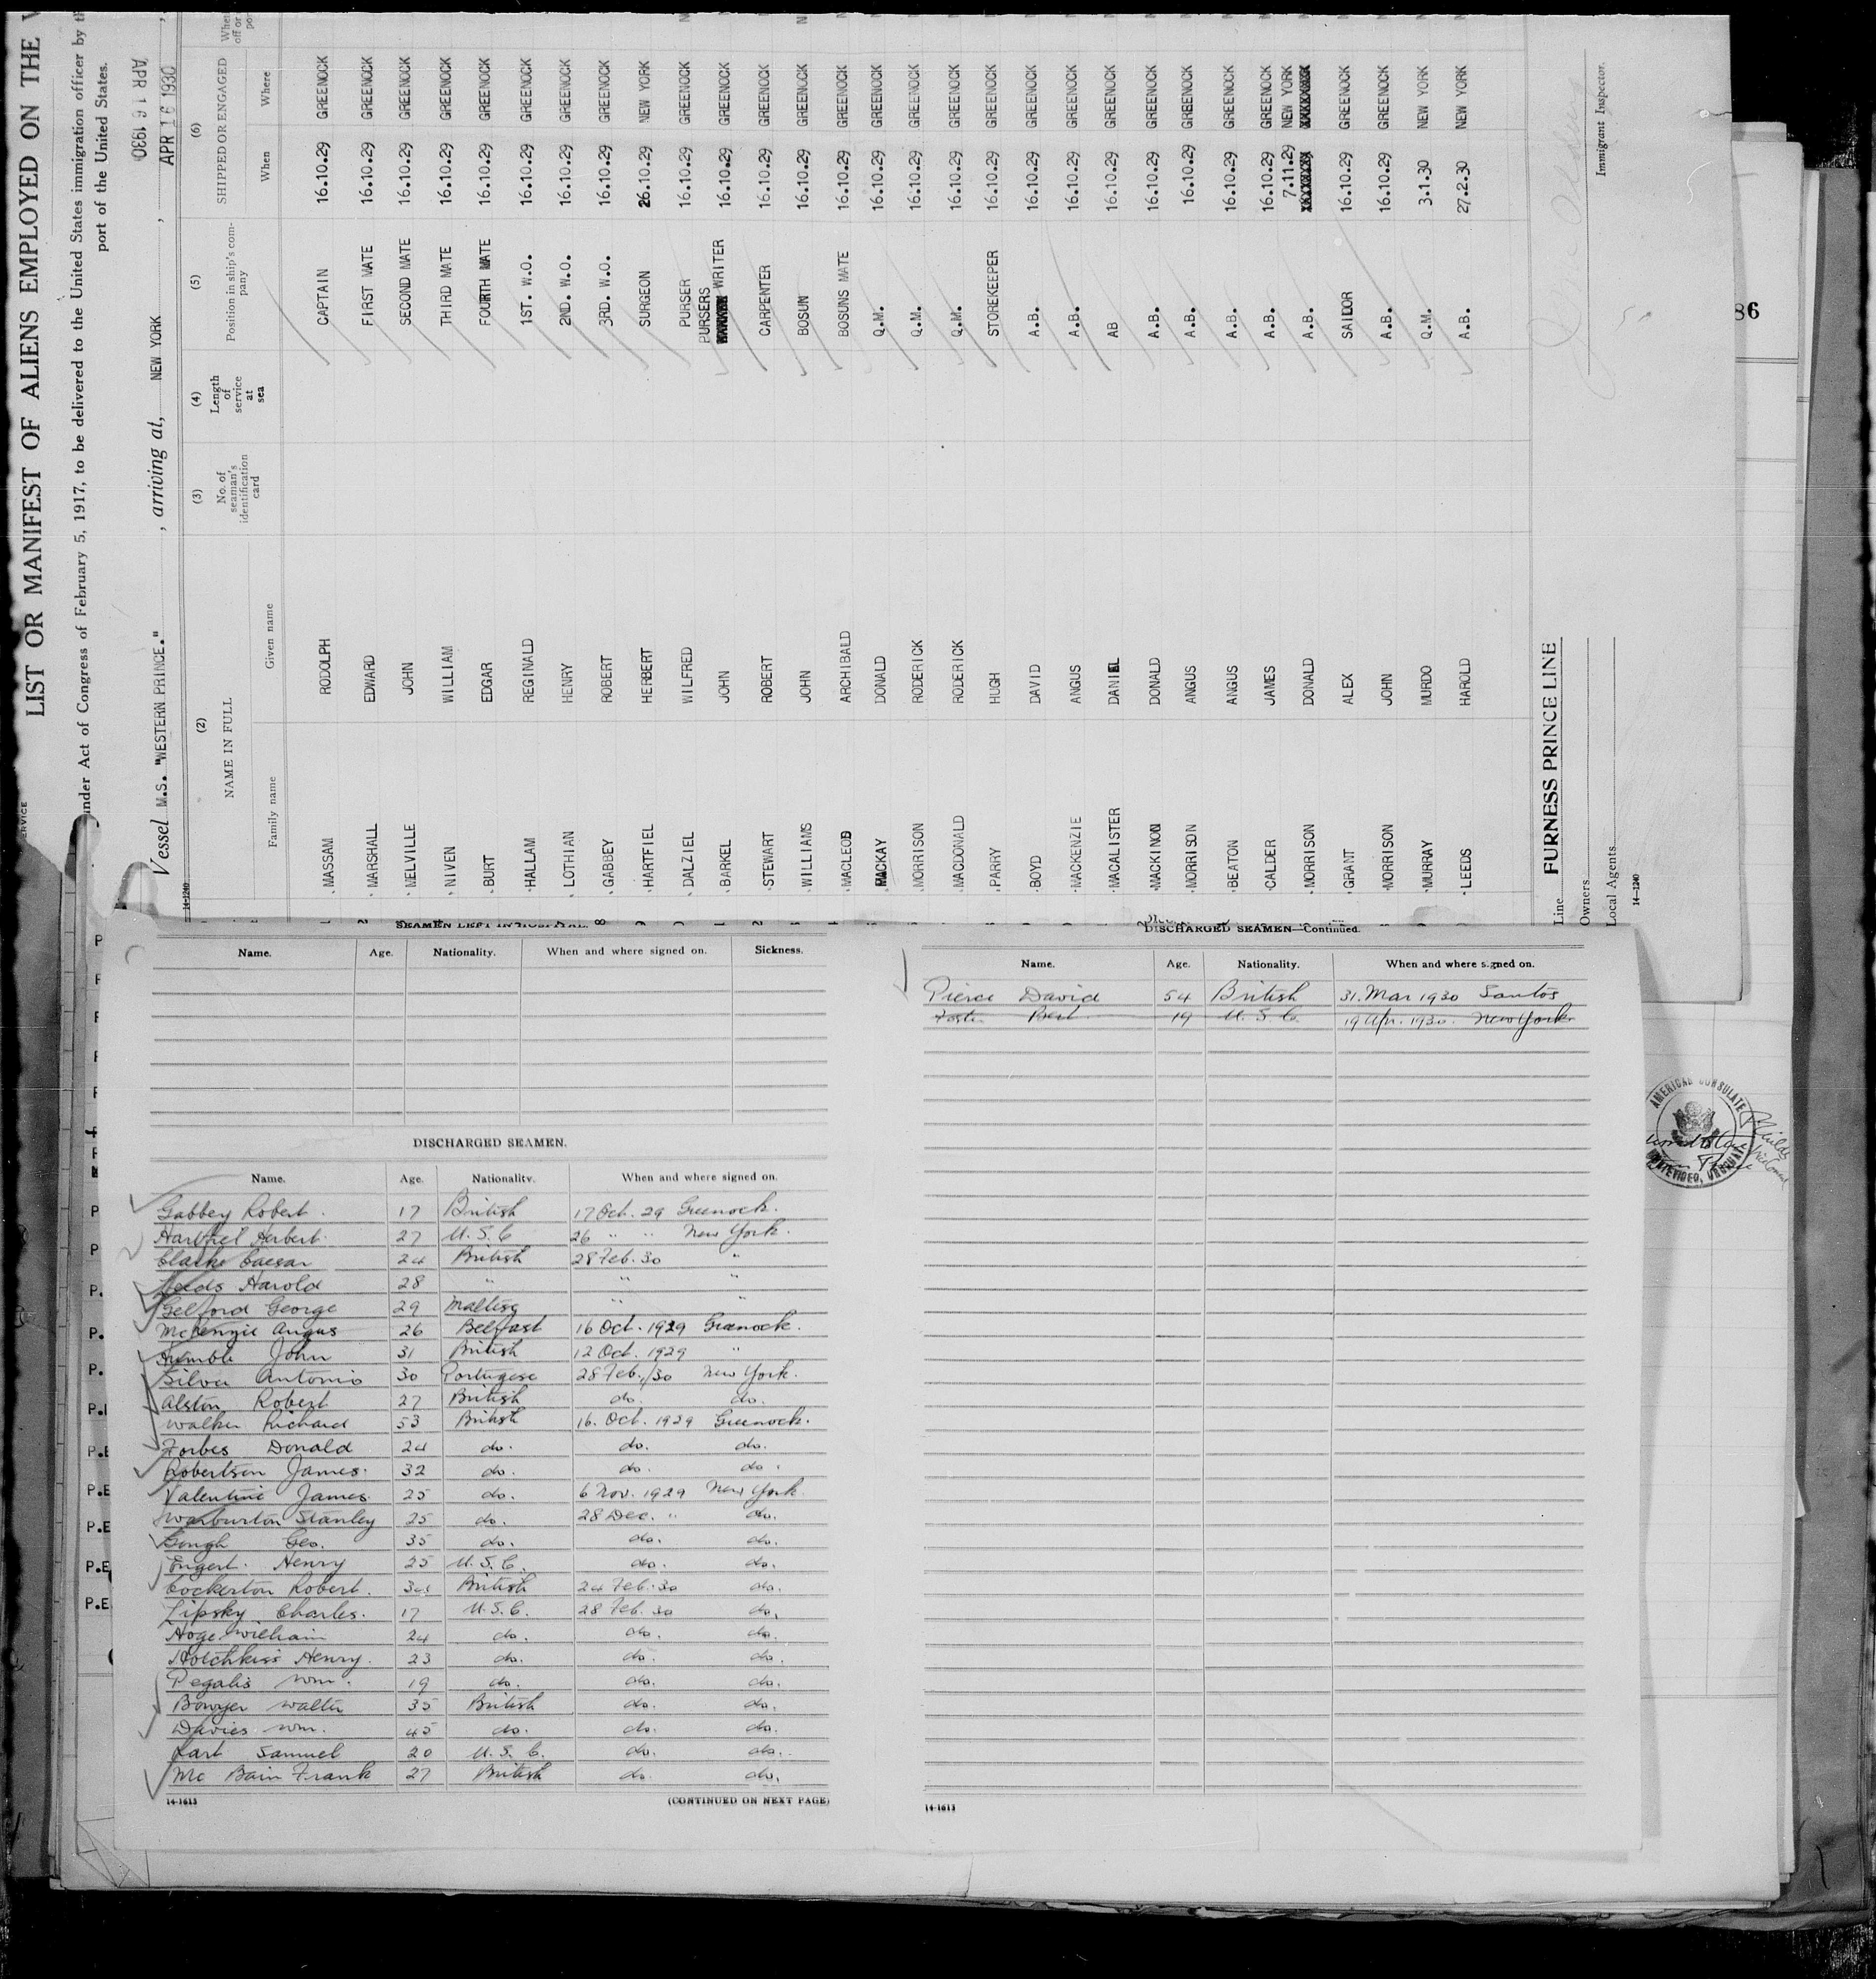 LIST OR MANIFEST OF ALIENS EMPLOYED ON THE
under Act of Congress of February 5, 1917, to be delivered to the United States immigration officer by
port of the United States.
APR 16 1930
Vessel M.S. "WESTERN PRINCE." , arriving at, NEW YORK , APR 16 1930 ,
14-1240
(2) (3) (4) (5) (6)
NAME IN FULL No. of seaman's identification card Length of service at sea Position in ship's company SHIPPED OR ENGAGED
Family name Given name When Where
MASSAM RODOLPH CAPTAIN 16.10.29 GREENOCK
MARSHALL EDWARD FIRST MATE 16.10.29 GREENOCK
MELVILLE JOHN SECOND MATE 16.10.29 GREENOCK
NIVEN WILLIAM THIRD MATE 16.10.29 GREENOCK
BURT EDGAR FOURTH MATE 16.10.29 GREENOCK
HALLAM REGINALD 1ST. W.O. 16.10.29 GREENOCK
LOTHIAN HENRY 2ND. W.O. 16.10.29 GREENOCK
GABBEY ROBERT 3RD. W.O. 16.10.29 GREENOCK
HARTFIEL HERBERT SURGEON 26.10.29 NEW YORK
DALZIEL WILFRED PURSER 16.10.29 GREENOCK
BARKEL JOHN PURSERS WRITER 16.10.29 GREENOCK
STEWART ROBERT CARPENTER 16.10.29 GREENOCK
WILLIAMS JOHN BOSUN 16.10.29 GREENOCK
MACLEOD ARCHIBALD BOSUNS MATE 16.10.29 GREENOCK
MACKAY DONALD Q.M. 16.10.29 GREENOCK
MORRISON RODERICK Q.M. 16.10.29 GREENOCK
MACDONALD RODERICK Q.M. 16.10.29 GREENOCK
PARRY HUGH STOREKEEPER 16.10.29 GREENOCK
BOYD DAVID A.B. 16.10.29 GREENOCK
MACKENZIE ANGUS A.B. 16.10.29 GREENOCK
MACALISTER DANIEL AB 16.10.29 GREENOCK
MACKINON DONALD A.B. 16.10.29 GREENOCK
MORRISON ANGUS A.B. 16.10.29 GREENOCK
BEATON ANGUS A.B. 16.10.29 GREENOCK
CALDER JAMES A.B. 16.10.29 GREENOCK
MORRISON DONALD A.B. 7.11.29 NEW YORK
GRANT ALEX SAILOR 16.10.29 GREENOCK
MORRISON JOHN A.B. 16.10.29 GREENOCK
MURRAY MURDO Q.M. 3.1.30 NEW YORK
LEEDS HAROLD A.B. 27.2.30 NEW YORK
Line FURNESS PRINCE LINE
Owners
Local Agents
Immigrant Inspector.
14-1240
86
SEAMEN LEFT IN HOSPITAL.
Name. Age. Nationality. When and where signed on. Sickness.
DISCHARGED SEAMEN.
Name. Age. Nationality. When and where signed on.
Gabbey Robert. 17 British 17 Oct. 29 Greenock.
Hartfiel Herbert. 27 U.S.C 26 " " New York.
Clarke Caesar 24 British 28 Feb. 30 "
Leeds Harold 28 " " "
Gelford George 29 Maltese " "
McKenzie Angus 26 Belfast 16 Oct. 1929 Greenock.
John 31 British 12 Oct. 1929 "
Silva Antonio 30 Portugese 28 Feb./30 New York.
Alston Robert 27 British do. do.
Walker Richard 53 British 16. Oct. 1929 Greenock.
Forbes Donald 24 do. do. do.
Robertson James. 32 do. do. do.
Valentine James. 25 do. 6 Nov. 1929 New York.
Warburton Stanley 25 do. 28 Dec. " do.
Geo. 35 do. do. do.
Engert. Henry 25 U.S.C. do. do.
Cockerton Robert. British 24 Feb. 30 do.
Lipsky Charles. 17 U.S.C. 28 Feb. 30 do.
Hoge William 24 do. do. do.
Hotchkiss Henry. 23 do. do. do.
Pegalis Wm. 19 do. do. do.
Bowyer Walter 35 British do. do.
Davies Wm. 45 do. do. do.
Samuel 20 U.S.C. do. do.
Mc Bain Frank 27 British do do.
14-1613 (CONTINUED ON NEXT PAGE)
DISCHARGED SEAMEN—Continued.
Name. Age. Nationality. When and where signed on.
Pierce David 54 British 31. Mar 1930 Santos
Foster Bert 19 U.S.C. 19 Apr. 1930. New York
14-1613
AMERICAN CONSULATE
MONTEVIDEO, URUGUAY